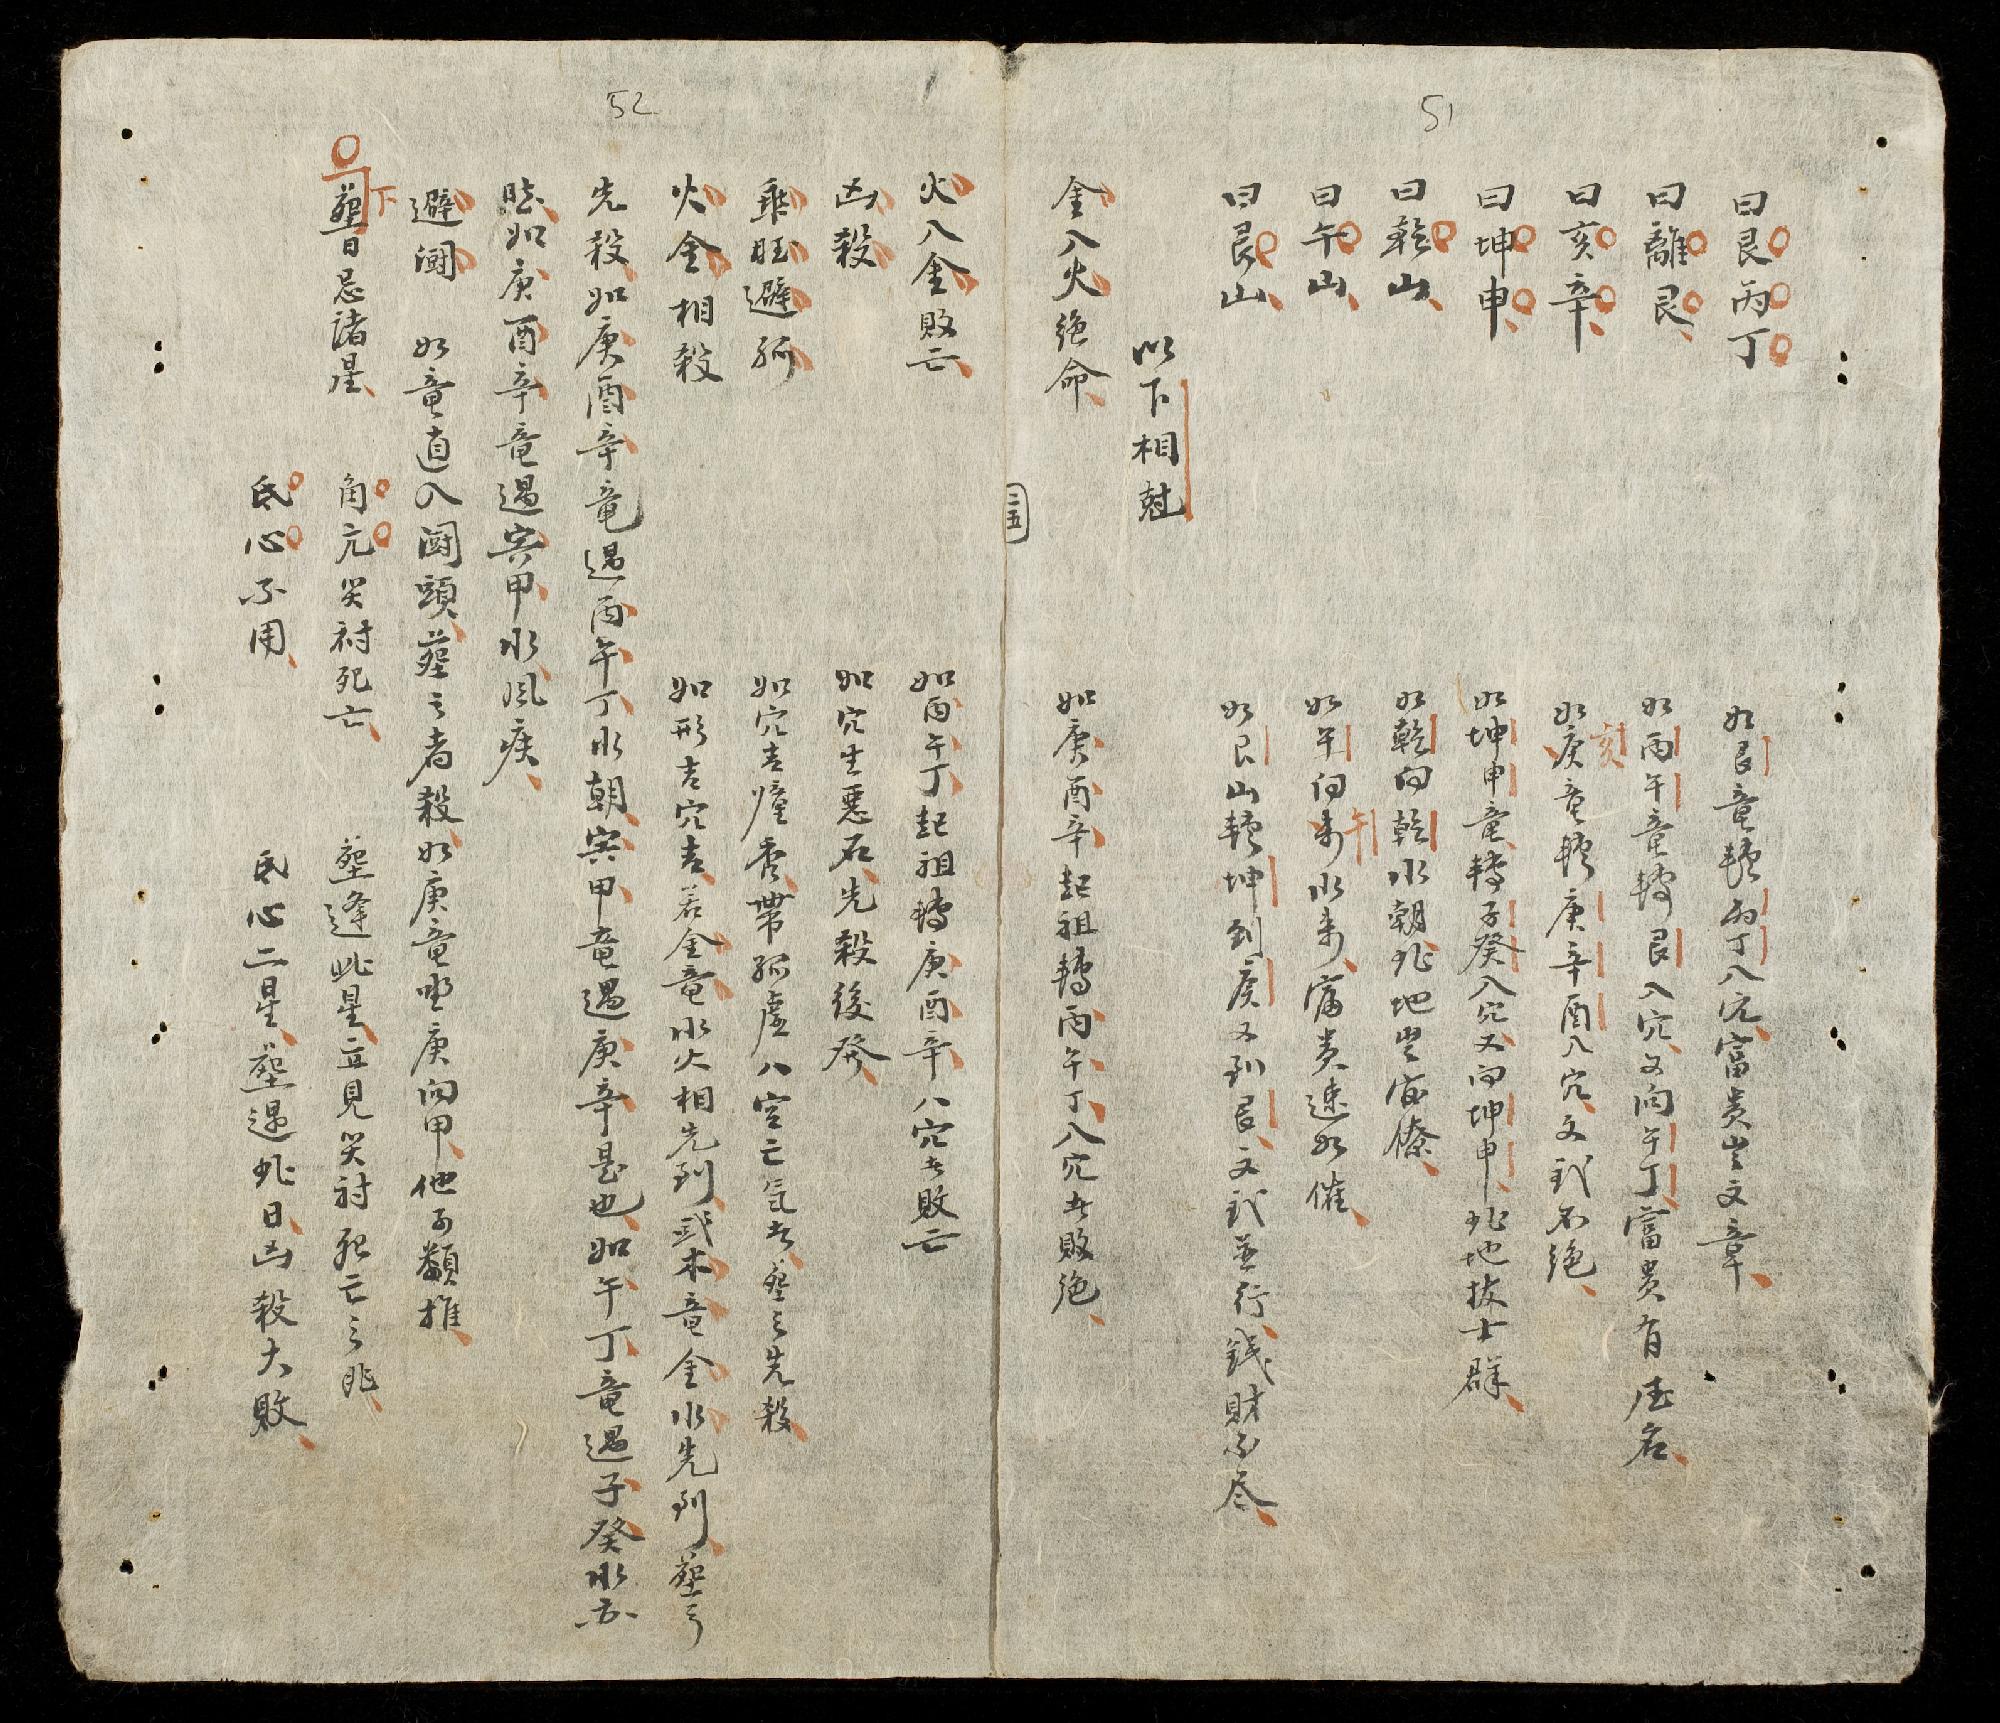 51
曰艮丙丁 如艮竜轉丙丁入穴富贵出文章
曰離艮 如丙午竜轉艮入穴又向午丁富贵有
曰亥辛 如亥竜轉庚辛酉入穴文武不绝
曰坤申 如坤申竜轉子癸入穴又向坤申此地拔士群
曰乾山 如乾向乾水朝此地出官僚
曰午山 如午向午水来富贵速如催
曰艮山 如艮山轉坤到庚又到艮文武並行钱財不尽
以下相尅
金入火绝命 如庚酉辛起祖轉丙午丁入穴者敗绝
三五
52
火入金敗亡 如丙午丁起祖轉庚酉辛入穴者敗亡
凶殺 如穴生惡石先殺後癸
乘旺避孤 如穴吉瘽秀帶孤虚入空亡気者葬之先殺
火金相殺 如形吉穴吉若金竜水火相先到或木竜金水先到葬了
先殺如庚酉辛竜遇丙午丁水朝寅甲竜遇庚辛是也如午丁竜遇子癸水亦
如庚酉辛竜遇寅甲水风疾
避闘 如竜直入闘頭葬之者殺如庚竜坐庚向甲他可類推
葬下日忌諸星 角亢哭討死亡 葬逢此星立見哭討死亡之兆
氐心不用 氐心二星葬遇此日凶殺大敗